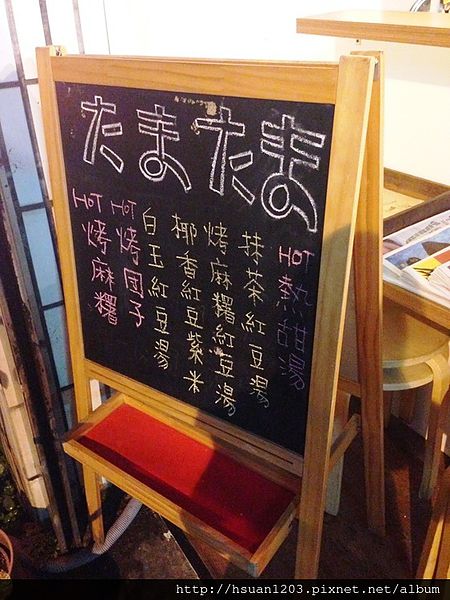 たまたま
HOT 熱甜湯
抹茶紅豆湯
烤麻糬紅豆湯
椰香紅豆紫米
白玉紅豆湯
HOT 烤団子
HOT 烤麻糬
http://hsuan1203.pixnet.net/album